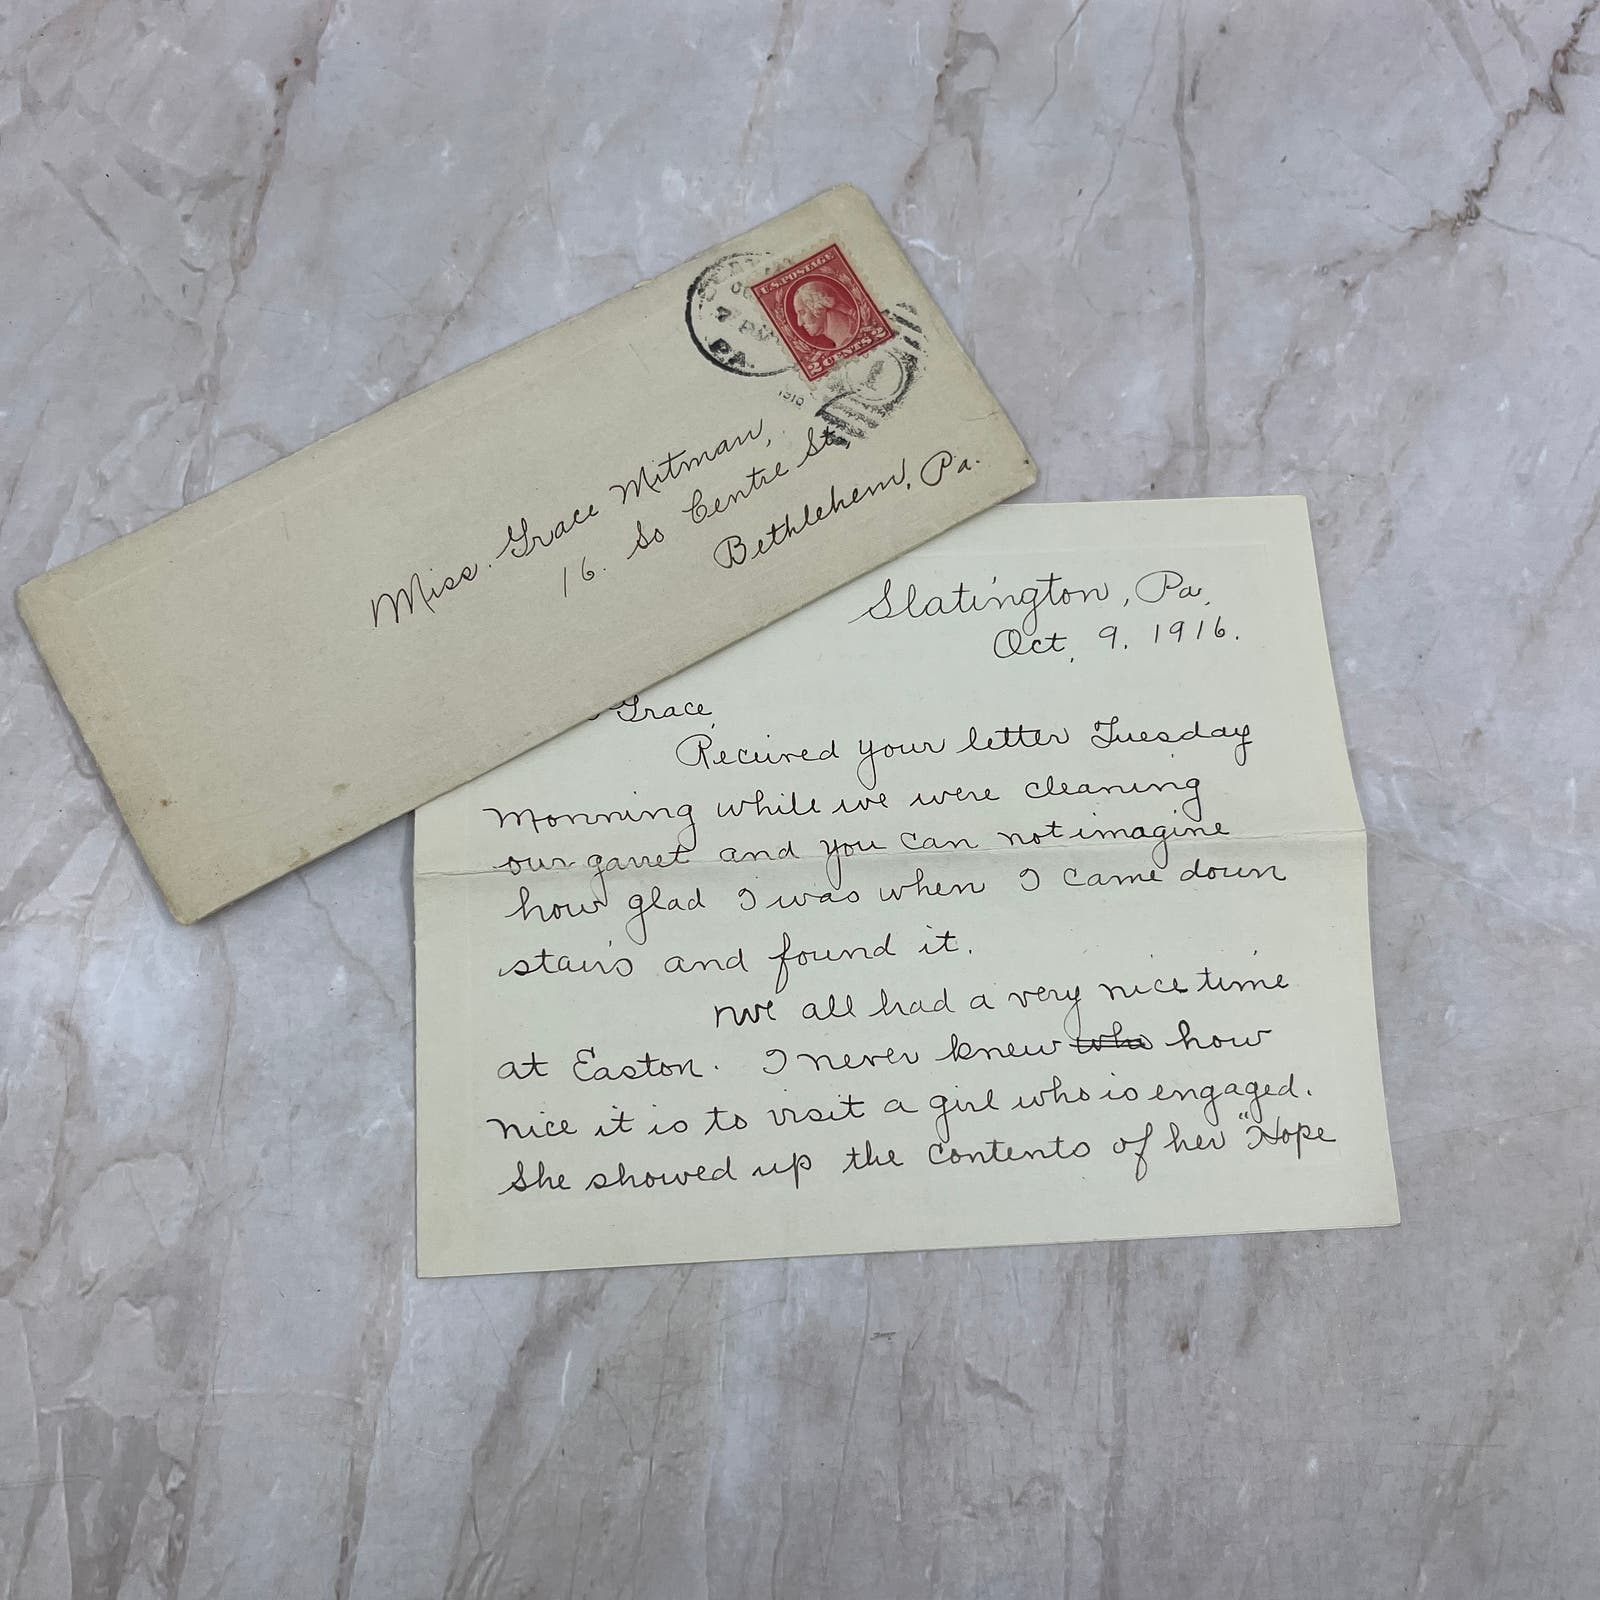 PA.
1916
U.S. POSTAGE
2 CENTS 2
Miss. Grace Mitman,
16. So Centre St,
Bethlehem, Pa.
Slatington, Pa,
Oct, 9. 1916.
Grace,
Received your letter Tuesday
Monning while we were cleaning
our garret and you can not imagine
how glad I was when I came down
stairs and found it.
We all had a very nice time
at Easton. I never knew who how
nice it is to visit a girl who is engaged.
She showed up the contents of her "Hope